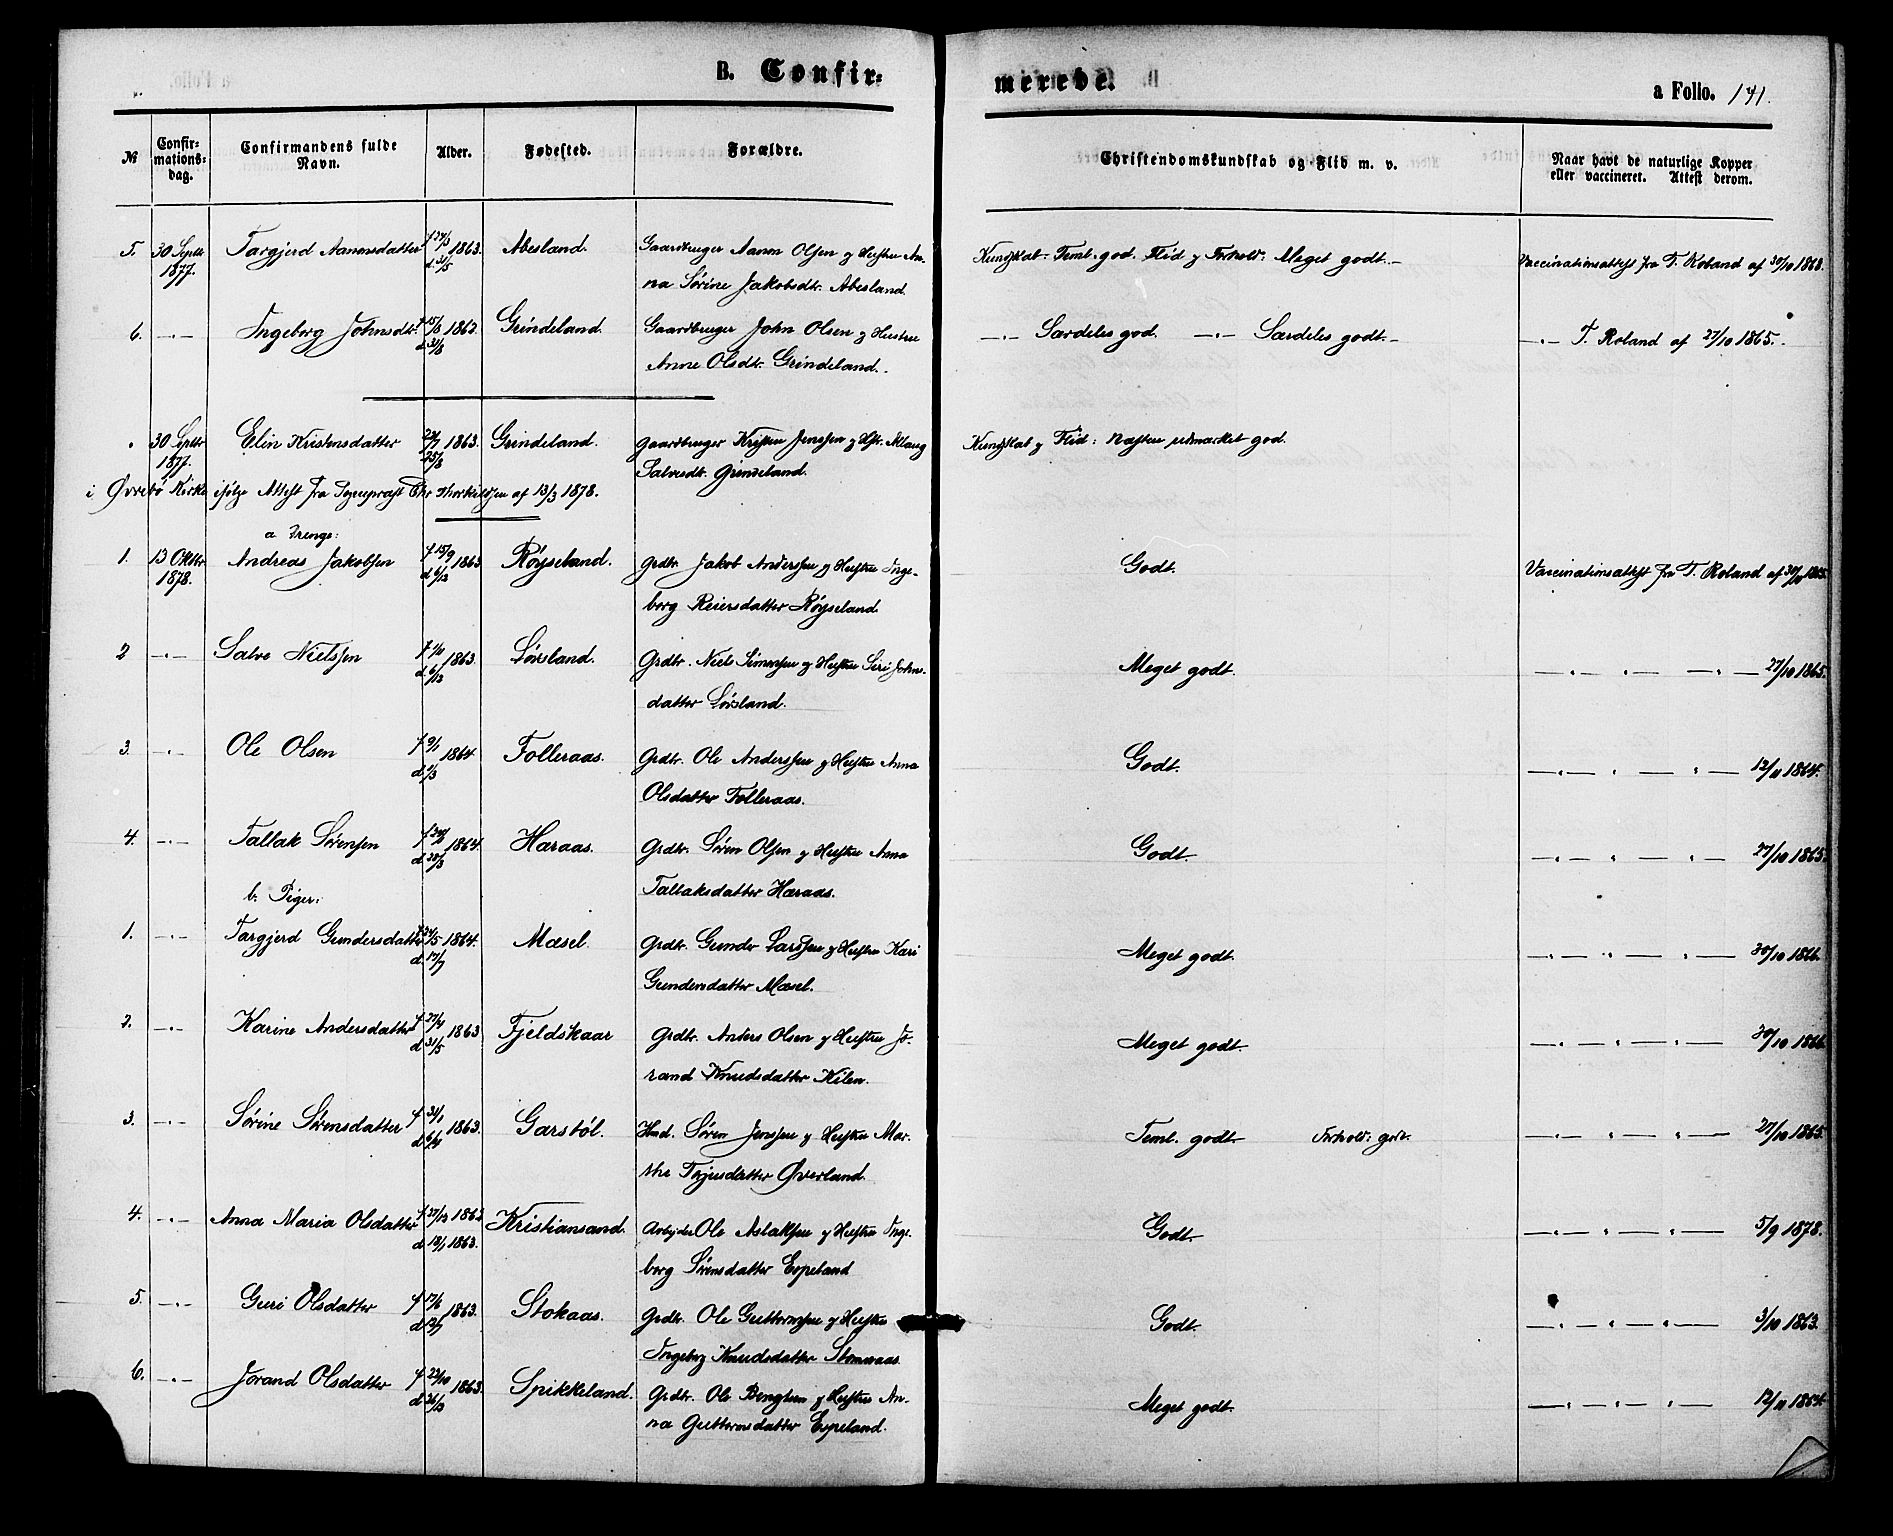 B. Confir=
merede.
a Folio. 141.
№
Confir=
mations=
dag.
Confirmandens fulde
Navn.
Alder.
Fødested.
Forældre.
Christendomskundskab og Flid m. v.
Naar havt de naturlige Kopper
eller vaccineret. Attest derom.
5. 30 Septbr 1877. Targjerd Aanonsdatter f 1863. d. 31/5 Abesland. Gaardbruger Aanon Olsen og Hustru An-
na Sørine Jakobsdtr. Abesland. Kundskab: Teml. god. Flid og Forhold: Meget godt.- Vaccinationsattest fra T. Roland af 30/10 1863.
6. -"- Ingeborg Johnsdtr. f 15/8 1863. d. 31/8 Grindeland. Gaardbruger John Olsen og Hustru
Anne Olsdtr. Grindeland. -"- Særdeles god. -"- Særdeles godt.- -"- T. Roland af 27/10 1865.
30 Septbr 1877. Elin Kristensdatter 1863. Grindeland. Gaardbruger Kristen Jenssen og Hstr. Aslaug
Salvesdtr. Grindeland. Kundskab og Flid: Næsten udmærket god.
i Øvrebø Kirke ifølge Attest fra Sognepræst Chr Thorkildsen af 13/3 1878.
a. Drenge:
1. 13 Oktbr 1878. Andreas Jakobsen f 15/9 1863 d. 6/12 Røyseland. Grdbr. Jakob Anderssen og Hustru Inge-
borg Reiersdatter Røyseland. Godt. Vaccinationsattest fra T. Roland af 1865.
2 -"- Salve Nielssen f 1/10 1863. d. 6/12 Lørsland. Grdbr. Niels Simonsen og Hustru Seri Johns-
datter Lørsland. Meget godt. -"- -"- 27/10 1865.
3. -"- Ole Olsen f 9/1 1864 Folleraas. Grdbr. Ole Anderssen og Hustru Anna
Olsdatter Folleraas. Godt. -"- -"- 12/11 1864.
4. -"- Tallak Sørensen 1864. d. 28/3 Haraas. Grdbr. Søren Olsen og Hustru Anna
Tallaksdatter Haraas. Godt. -"- -"- 27/10 1865.
b. Piger:
1. -"- Targjerd Gundersdatter 1864. d. 17/7 Mæsel. Grdbr. Gunder Larssen og Hustru Kari
Gundersdatter Mæsel. Meget godt. -"- -"- 30/10 1866.
2. -"- Karine Andersdatter f 27/4 1863 d 31/5 Fjeldskaar Grdbr. Anders Olsen og Hustru Jo-
rand Knudsdatter Kilen. Meget godt. -"- -"- 30/10 1866.
3. -"- Sørine Sørensdatter f 31/1 1863. Garstøl. Hmd. Søren Jenssen og Hustru Mar-
the Terjusdatter Øverland. Teml. godt. Forhold: godt. -"- -"- 27/10 1865.
4. -"- Anna Maria Olsdatter f 27/12 1862 d. 18/1 1863. Kristiansand. Arbejder Ole Aslaksen og Hustru Inge-
borg Sørensdatter Espeland Godt. -"- -"- 5/9 1878.
5. -"- Guri Olsdatter f 17/6 1863. d. 12/7 Stokaas. Grdbr. Ole Guttormsen og Hustru
Ingeborg Knudsdatter Godt. -"- -"- 3/10 1863.
6. -"- Jorand Olsdatter f 22/10 1863. d. 26/12 Spikkeland. Grdbr. Ole Bengtsen og Hustru An-
na Guttormsdatter Espeland. Meget godt. -"- -"- 12/11 1864.